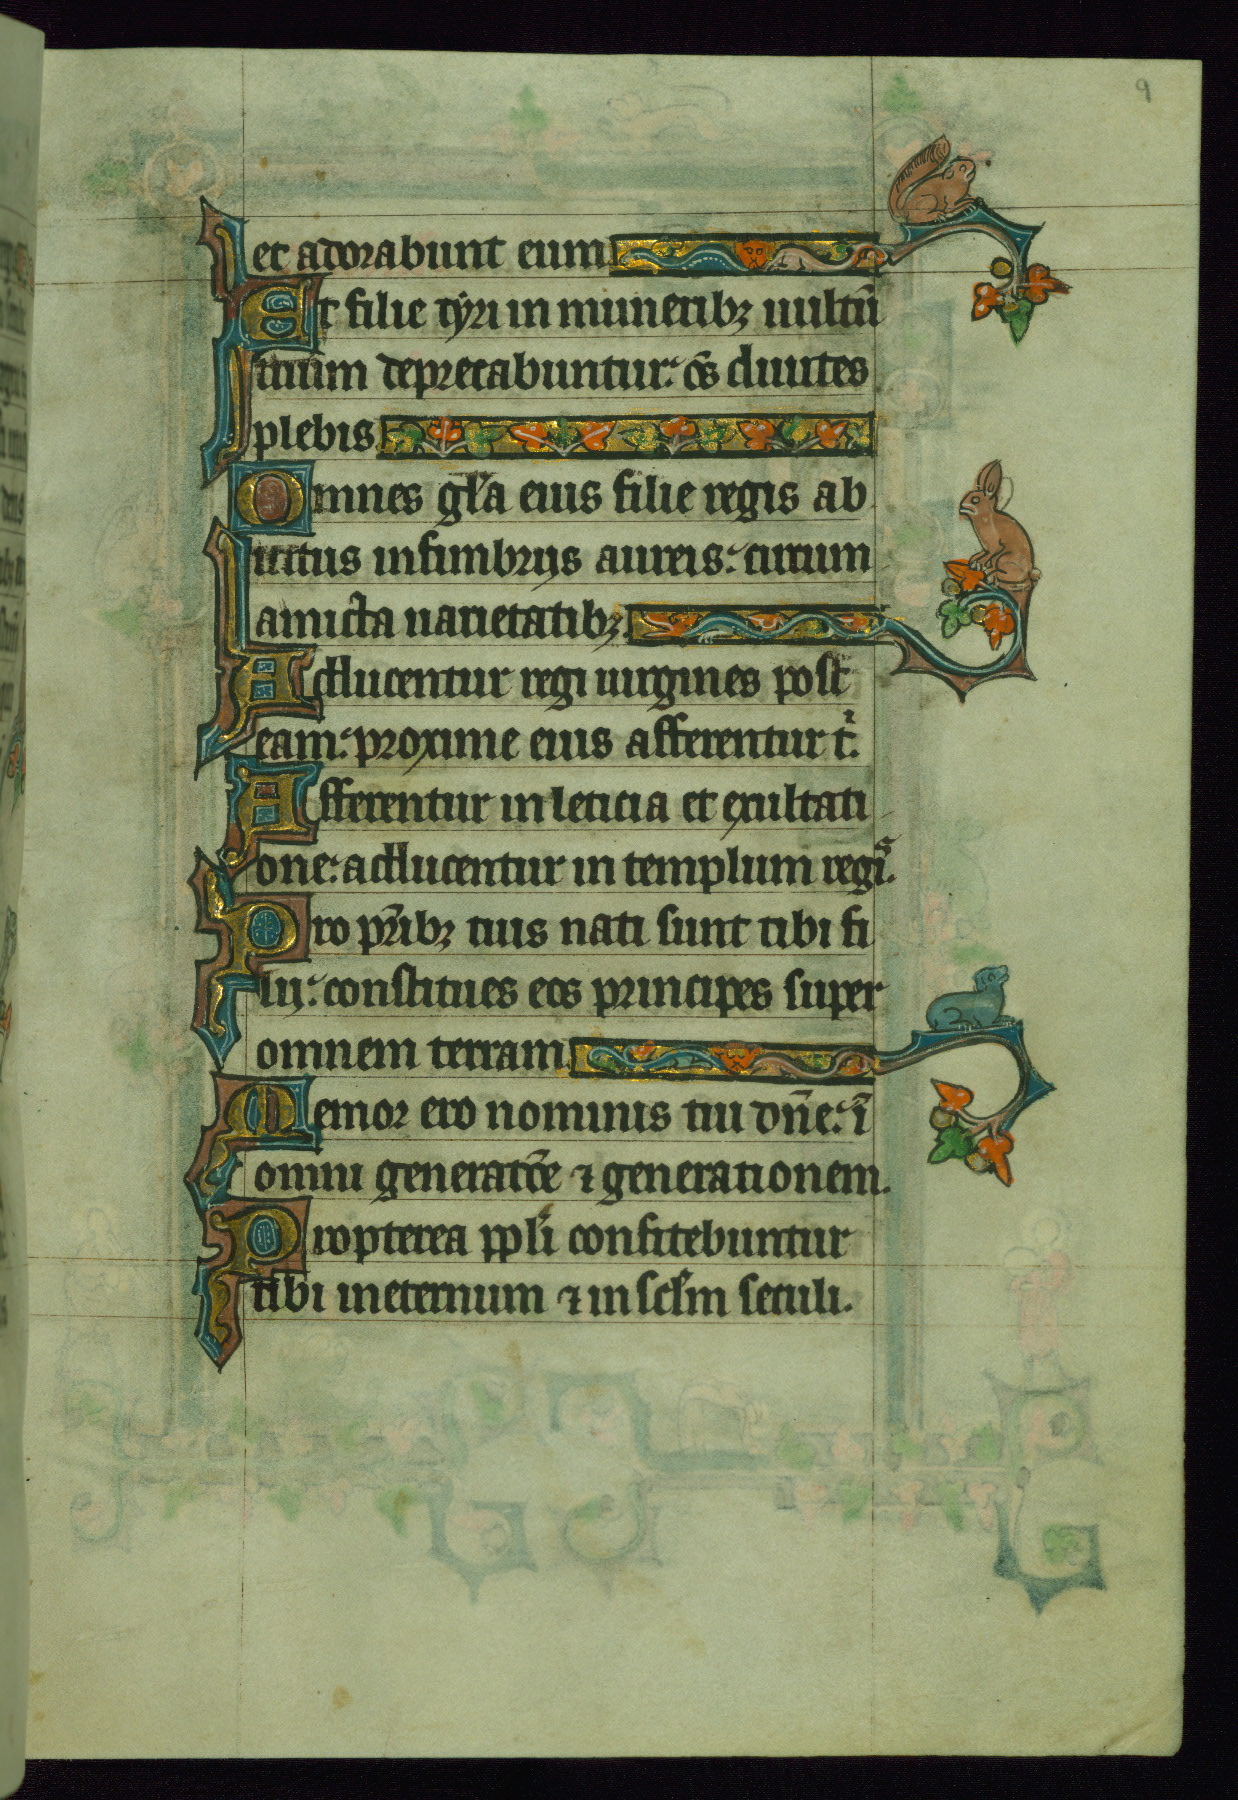 9
et adorabunt eum
Et filie tyri in muneribꝫ uultū
tuum deprecabuntur: oēs diuites
plebis
Omnes gl̄a eius filie regis ab
intus in fimbrijs aureis: circum
amicta uarietatibꝫ
Adducentur regi uirgines post
eam: proxime eius afferentur tⁱ.
Afferentur in leticia et exultati
one: adducentur in templum regis.
Pro pr̄ibꝫ tuis nati sunt tibi fi
lij: constitues eos principes super
omnem terram
Memor ero nominis tui dn̄e: ī
omni generatōe ⁊ generationem.
Propterea ppl̄i confitebuntur
tibi in eternum ⁊ in scl̄m seculi.